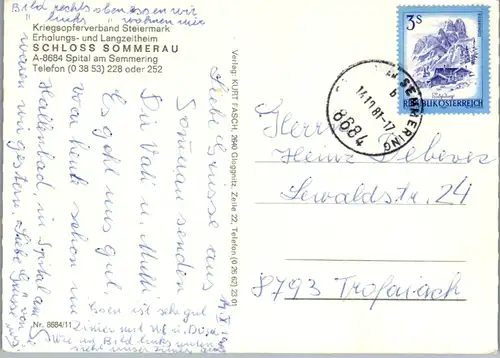 Bild rechts oben essen wir
" links " wohnen wir
Kriegsopferverband Steiermark
Erholungs- und Langzeitheim
SCHLOSS SOMMERAU
A-8684 Spital am Semmering
Telefon (0 38 53) 228 oder 252
Liebe Grüsse aus
Sommerau senden
Dir Vati u. Mutti
Es geht uns gut,
war heute schon im
Hallenbad, in Spital am S
waren wir gestern. Liebe Grüsse
Essen ist sehr gut
Zimmer mit WC u. Dusche
Nr. 8684/11
Verlag: KURT FASCH, 2640 Gloggnitz, Zeile 22, Telefon (0 26 62) 23 01
3S
REPUBLIK ÖSTERREICH
AM SEMMERING
b
14.10.81-17
8684
Herrn
Heinz
Lewaldstr. 24
8793 Trofaiach